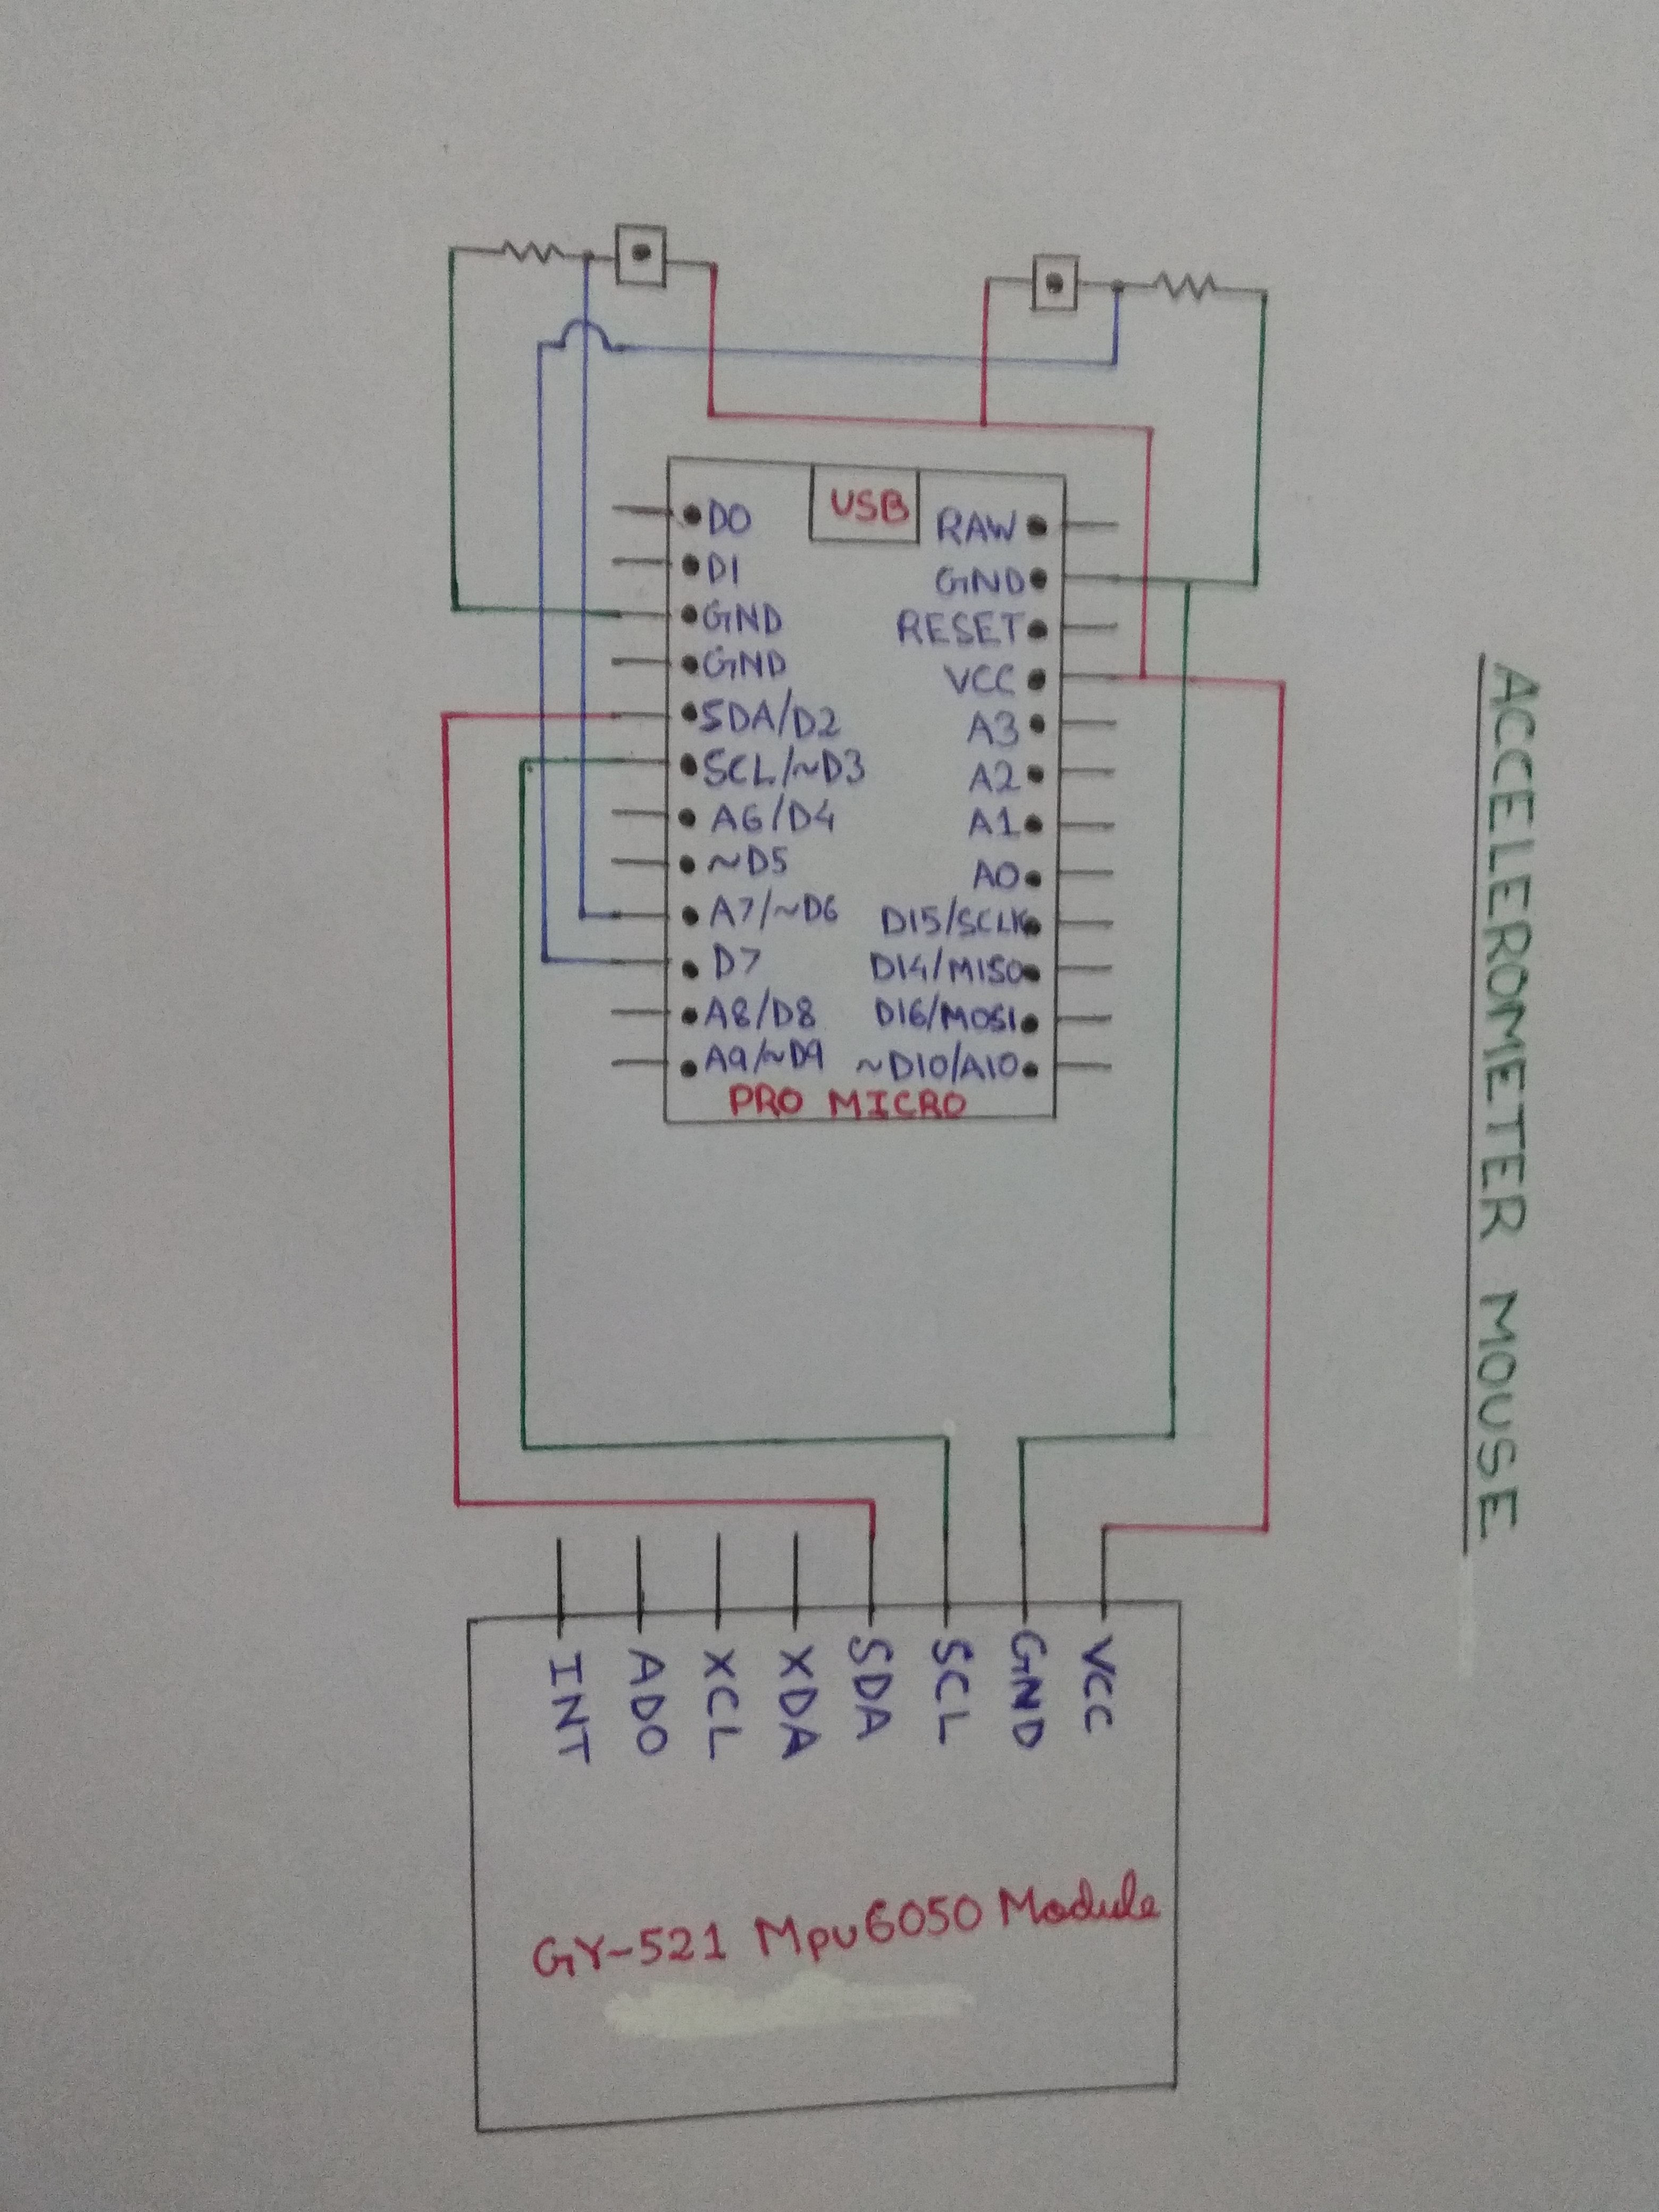 ACCELEROMETER MOUSE
RAW
GND
RESET
VCC
A3
A2
A1
A0
D15/SCLK
D14/MISO
D16/MOSI
~D10/A10
USB
PRO MICRO
D0
D1
GND
GND
SDA/D2
SCL/~D3
A6/D4
~D5
A7/~D6
D7
A8/D8
A9/~D9
VCC
GND
SCL
SDA
XDA
XCL
ADO
INT
GY-521 Mpu6050 Module